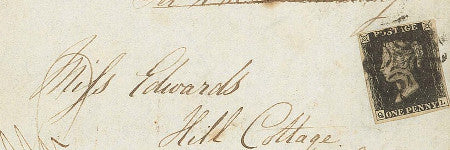 POSTAGE
Miss Edwards
ONE PENNY L
Hill Cottage.